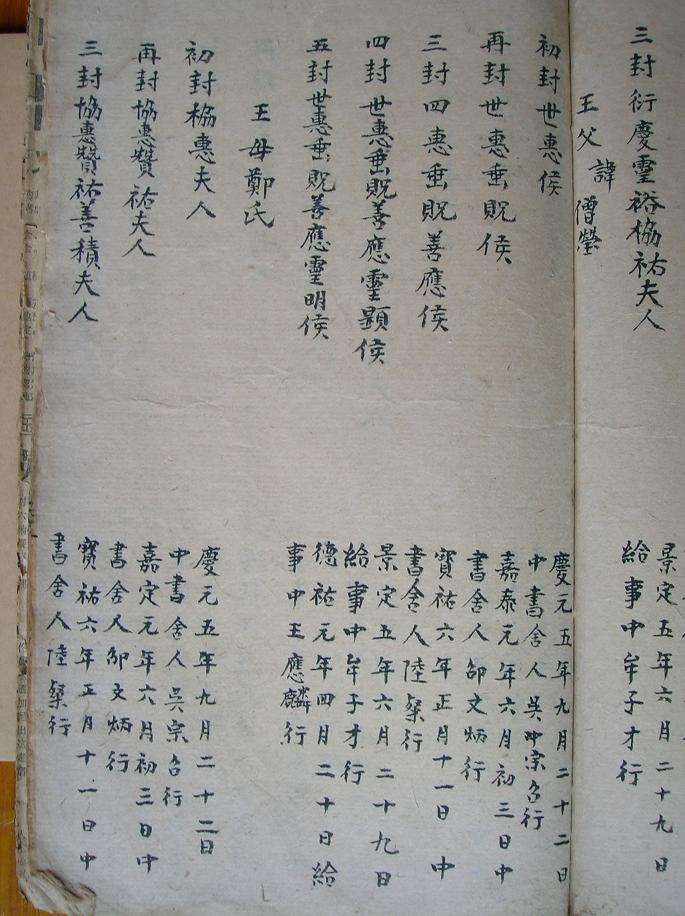 三封衍慶靈裕協祐夫人
景定五年六月二十九日
給事中牟子才行
王父諱僧瑩
初封世惠侯
慶元五年九月二十二日
中書舍人吳宗旦行
再封世惠垂貺侯
嘉泰元年六月初三日中
書舍人邵文炳行
三封四惠垂貺善應侯
寶祐六年正月十一日中
書舍人陸粲行
四封世惠垂貺善應靈顯侯
景定五年六月二十九日
給事中牟子才行
五封世惠垂貺善應靈明侯
德祐元年四月二十日給
事中王應麟行
王母鄭氏
初封協惠夫人
慶元五年九月二十二日
中書舍人吳宗召行
再封協惠贊祐夫人
嘉定元年六月初三日中
書舍人邵文炳行
三封協惠贊祐善積夫人
寶祐六年正月十一日中
書舍人陸粲行